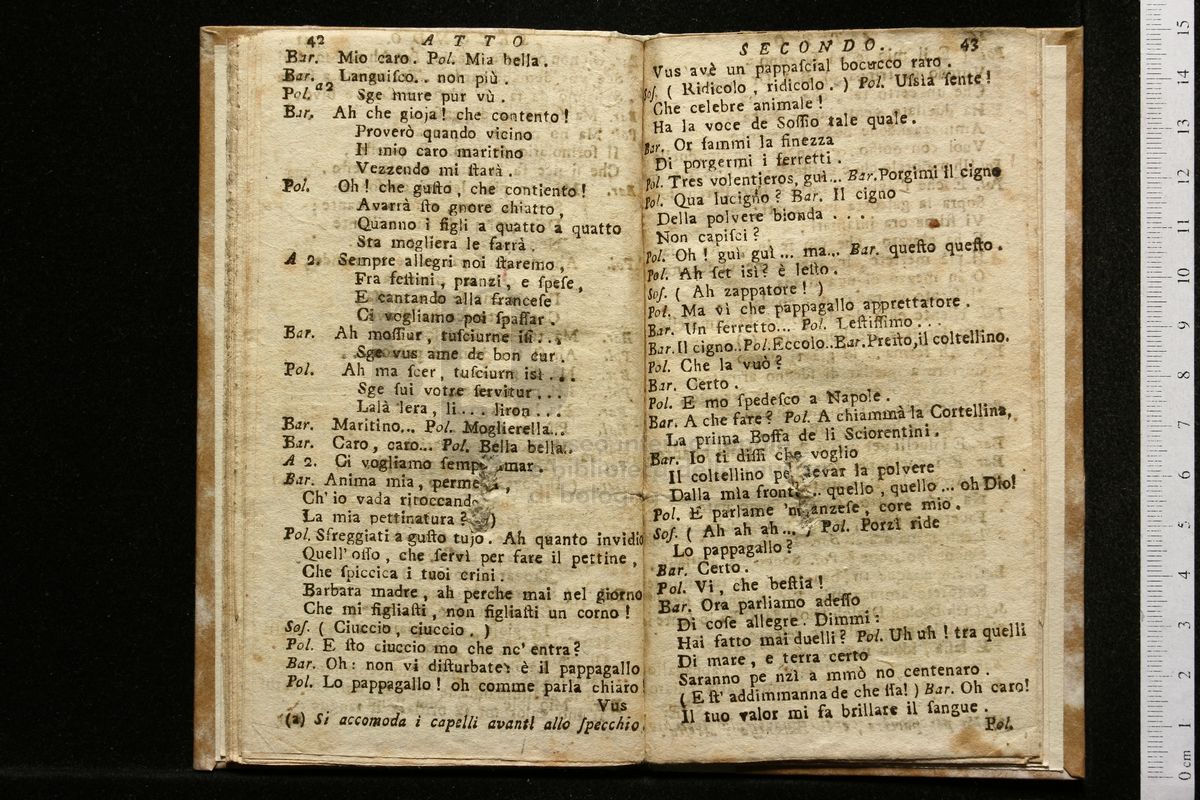 42 ATTO
Bar. Mio caro. Pol. Mia bella.
Bar. Languiſco.. non più.
Pol. a2 Sge mure pur vù.
Bar. Ah che gioja! che contento!
Proverò quando vicino
Il mio caro maritino
Vezzendo mi ſtarà.
Pol. Oh! che guſto, che contiento!
Avarrà ſto gnore chiatto,
Quanno i figli a quatto a quatto
Sta mogliera le farrà.
A 2. Sempre allegri noi ſtaremo,
Fra feſtini, pranzi, e ſpeſe,
E cantando alla franceſe
Ci vogliamo poi ſpaſſar.
Bar. Ah moſſiur, tuſciurne iſi...
Sge vus ame de bon cur.
Pol. Ah ma ſcer, tuſciurn isì...
Sge ſui votre ſervitur...
Lalà lera, li... liron...
Bar. Maritino... Pol. Moglierella...
Bar. Caro, caro... Pol. Bella bella..
A 2. Ci vogliamo ſemp mar.
Bar. Anima mia, perme ,
Ch' io vada ritoccand
La mia pettinatura? )
Pol. Sfreggiati a guſto tujo. Ah quanto invidio
Quell' oſſo, che ſervì per fare il pettine,
Che ſpiccica i tuoi crini.
Barbara madre, ah perche mai nel giorno
Che mi figliaſti, non figliaſti un corno!
Soſ. ( Ciuccio, ciuccio. )
Pol. E ſto ciuccio mo che nc' entra?
Bar. Oh: non vi diſturbate: è il pappagallo
Pol. Lo pappagallo! oh comme parla chiaro
Vus
(a) Si accomoda i capelli avanti allo ſpecchio
SECONDO.. 43
Vus avè un pappaſcial bocucco raro.
Soſ. ( Ridicolo, ridicolo. ) Pol. Uſsìa ſente!
Che celebre animale!
Ha la voce de Soſſio tale quale.
Bar. Or fammi la finezza
Di porgermi i ferretti.
Pol. Tres volentieros, guì... Bar. Porgimi il cigno
Pol. Qua lucigno? Bar. Il cigno
Della polvere bionda...
Non capiſci?
Pol. Oh! guì guì... ma... Bar. queſto queſto.
Pol. Ah ſet isì? è leſto.
Soſ. ( Ah zappatore! )
Pol. Ma vì che pappagallo apprettatore.
Bar. Un ferretto... Pol. Leſtiſſimo...
Bar. Il cigno.. Pol. Eccolo.. Bar. Preſto, il coltellino.
Pol. Che la vuò?
Bar. Certo.
Pol. E mo ſpedeſco a Napole.
Bar. A che fare? Pol. A chiammà la Cortellina,
La prima Boffa de li Sciorentini.
Bar. Io ti diſſi che voglio
Il coltellino pe levar la polvere
Dalla mia front .. quello, quello... oh Dio!
Pol. E parlame 'n anzeſe, core mio.
Soſ. ( Ah ah ah... ) Pol. Porzì ride
Lo pappagallo?
Bar. Certo.
Pol. Vi, che beſtia!
Bar. Ora parliamo adeſſo
Di coſe allegre. Dimmi:
Hai fatto mai duelli? Pol. Uh uh! tra quelli
Di mare, e terra certo
Saranno pe nzì a mmò no centenaro.
( E ſt' addimmanna de che ſſa! ) Bar. Oh caro!
Il tuo valor mi fa brillare il ſangue.
Pol.